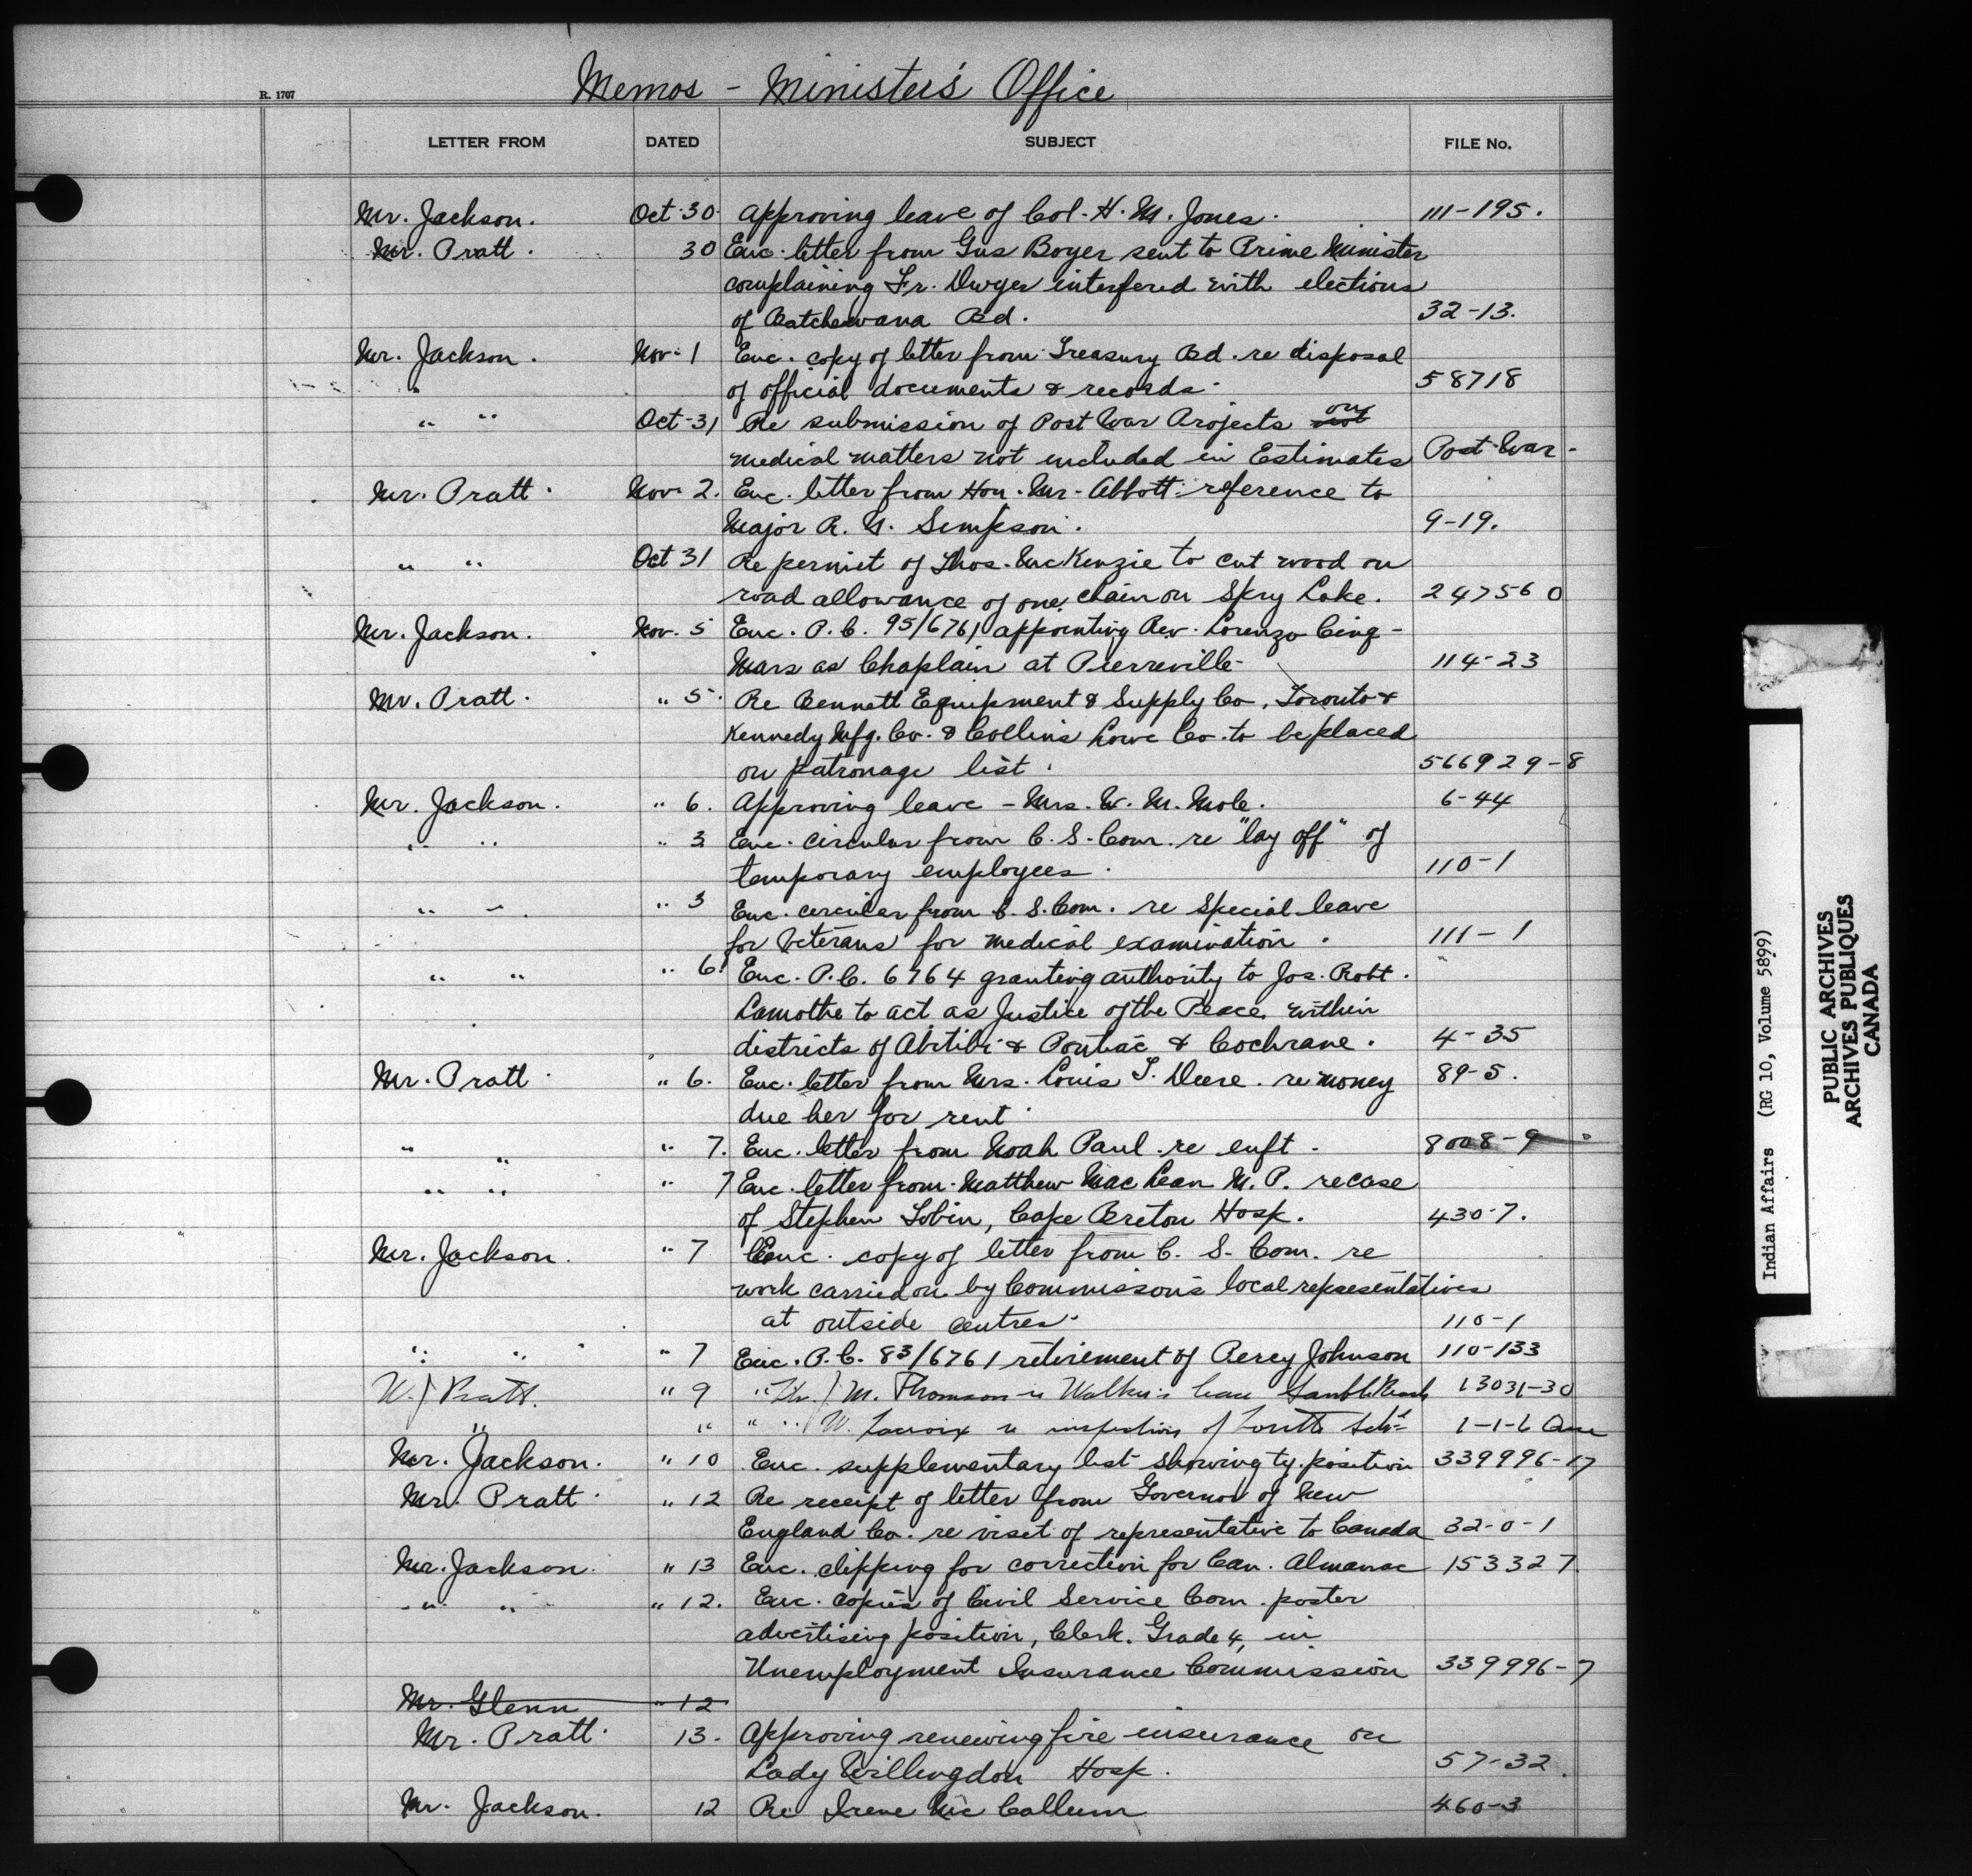 Memos - Minister's Office
R. 1707
LETTER FROM DATED SUBJECT FILE No.
Mr. Jackson. Oct. 30. Approving leave of Col. H. M. Jones. 111-195.
Mr. Pratt. 30 Enc. letter from Gus Boyer sent to Prime Minister
complaining Fr. Dwyer interfered with elections
of Batchewana Bd. 32-13.
Mr. Jackson. Nov. 1 Enc. copy of letter from Treasury Bd. re disposal
of official documents & records. 58718
" " Oct. 31 Re submission of Post War Projects on
medical matters not included in Estimates Post-War-
Mr. Pratt. Nov. 2. Enc. letter from Hon. Mr. Abbott reference to
Major R. Simpson. 9-19.
" " Oct 31 Re permit of Thos. MacKenzie to cut wood on
road allowance of one chain on Spry Lake. 247560
Mr. Jackson. Nov. 5 Enc. P.C. 95/6761 appointing Rev. Lorenzo Cinq-
Mars as Chaplain at Pierreville- 114-23
Mr. Pratt. " 5. Re Bennett Equipment & Supply Co, Toronto &
Kennedy Mfg. Co. & Collins Lowe Co. to be placed
on patronage list. 566929-8
Mr. Jackson. " 6. Approving leave - Mrs. W. M. Mole. 6-44
" " " 3 Enc. circular from C. S. Com. re "lay off" of
temporary employees. 110-1
" " " 3 Enc. circular from C. S. Com. re Special leave
for Veterans for medical examination. 111-1
" " " 6. Enc. P.C. 6764 granting authority to Jos. Robt.
Lamothe to act as Justice of the Peace within
districts of Abitibi & Pontiac & Cochrane. 4-35
Mr. Pratt. " 6. Enc. letter from Mrs. Louis T. Deere. re money 89-5.
due her for rent.
" " " 7. Enc. letter from Noah Paul re enft. 8008-9
" " " 7 Enc. letter from Matthew MacLean M.P. re case
of Stephen Tobin, Cape Breton Hosp. 430-7.
Mr. Jackson. " 7 Enc. copy of letter from C. S. Com. re
work carried on by Commisson's local representatives
at outside centres. 110-1
" " " 7 Enc. P.C. 83/6761 retirement of Percy Johnson 110-133
W. J Pratt. " 9 " J M. Thomson re Walker's lease Sauble Beach 13031-30
" " " " W. Lacroix re inspection of 1-1-6
Mr. Jackson. " 10 Enc. supplementary list showing ty. position 339996-17
Mr. Pratt. " 12 Re receipt of letter from Governor of New
England Co. re visit of representative to Canada 32-0-1
Mr. Jackson. " 13 Enc. clipping for correction for Can. Almanac 153327.
" " " 12. Enc. copies of Civil Service Com. poster
advertising position, Clerk. Grade 4, in
Unemployment Insurance Commission 339996-7
Mr. Glenn " 12
Mr. Pratt. 13. Approving renewing fire insurance on
Lady Willingdon Hosp. 57-32.
Mr. Jackson. 12 Re Irene McCallum 460-3
Indian Affairs (RG 10, Volume 5899)
PUBLIC ARCHIVES
ARCHIVES PUBLIQUES
CANADA